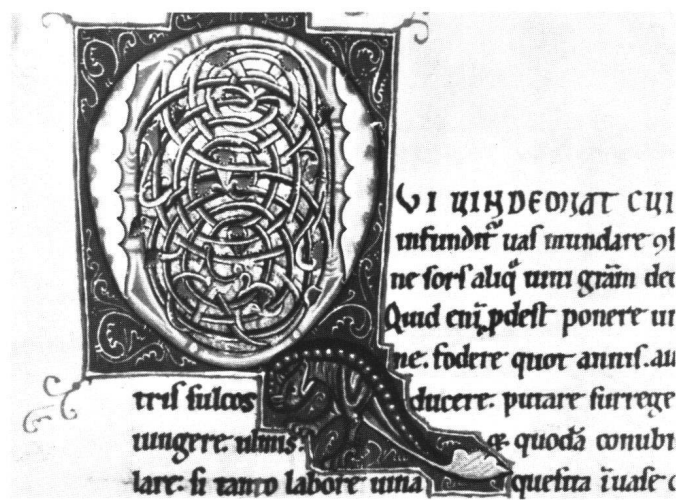 QUI UINDEMIAT CUI
infundit᷑ uas mundare ꝯs
ne sors aliq̄ uini gr̄am de
Quid eni̅ ꝓdest ponere ui
ne. fodere quot annis. au
tris sulcos ducere. putare surrege
iungere ulmis. & quodā conubi
lare. si tanto labore uina quesita ĩ uase c